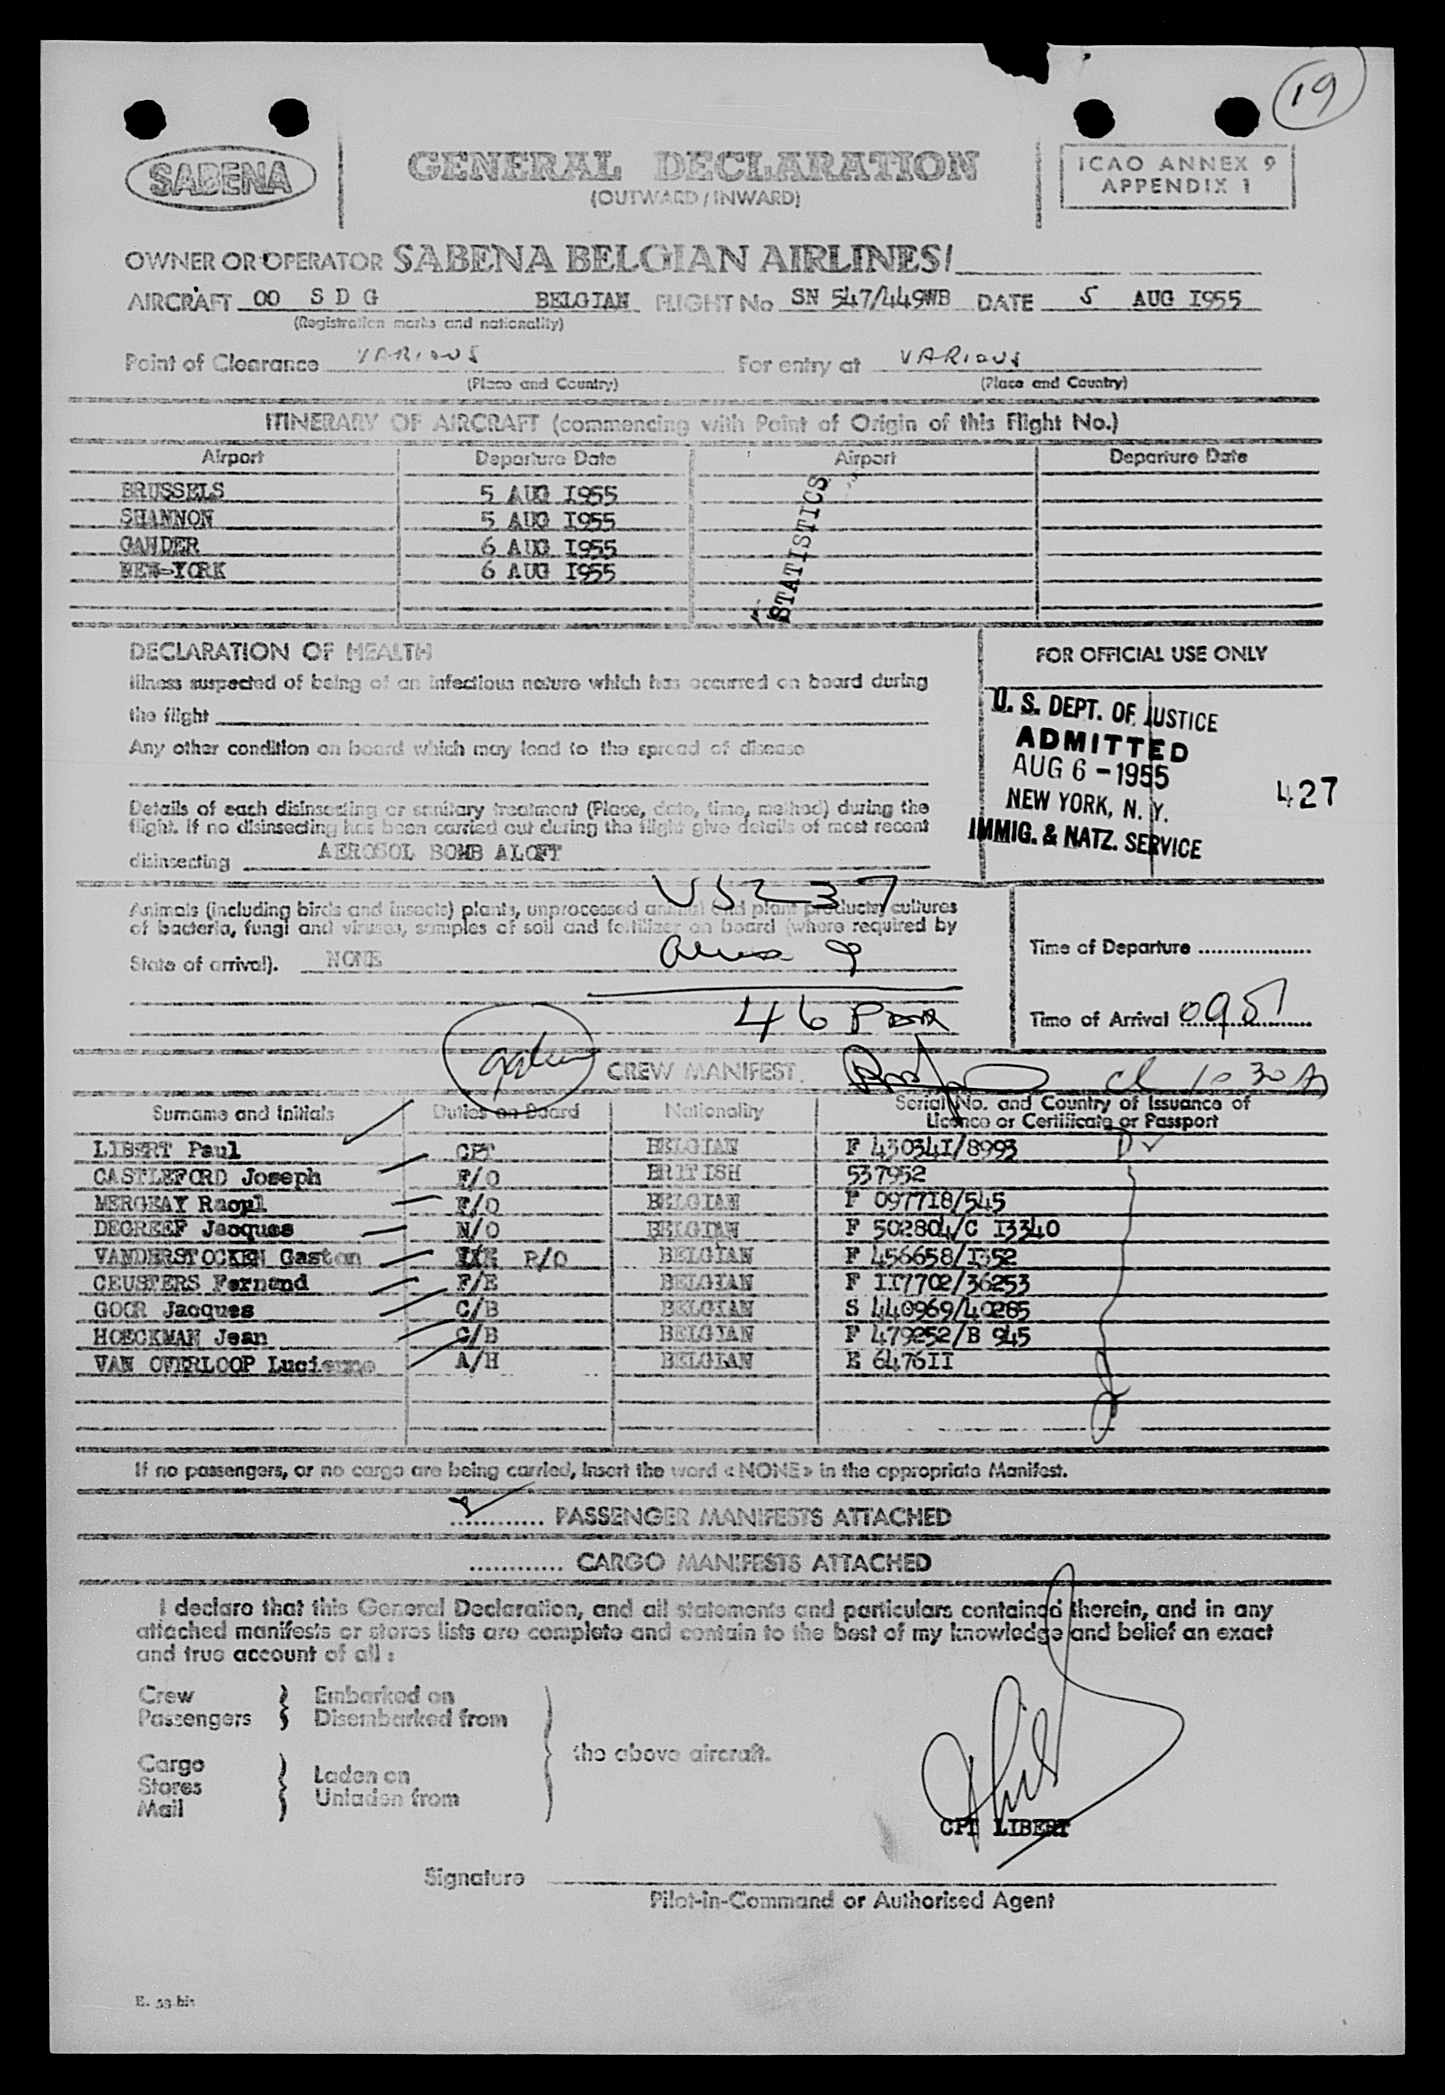 19
SABENA
GENERAL DECLARATION
(OUTWARD / INWARD)
ICAO ANNEX 9
APPENDIX 1
OWNER OR OPERATOR SABENA BELGIAN AIRLINES/
AIRCRAFT OO S D G BELGIAN FLIGHT No SN 547/449WB DATE 5 AUG I955
(Registration marks and nationality)
Point of Clearance VARIOUS For entry at VARIOUS
(Place and Country) (Place and Country)
ITINERARY OF AIRCRAFT (commencing with Point of Origin of this Flight No.)
Airport Departure Date Airport Departure Date
BRUSSELS 5 AUG I955
SHANNON 5 AUG I955
GANDER 6 AUG I955
NEW-YORK 6 AUG I955
STATISTICS
DECLARATION OF HEALTH
Illness suspected of being of an infectious nature which has occurred on board during
the flight
Any other condition on board which may lead to the spread of disease
Details of each disinsecting or sanitary treatment (Place, date, time, method) during the
flight. If no disinsecting has been carried out during the flight give details of most recent
disinsecting AEROSOL BOMB ALOFT
FOR OFFICIAL USE ONLY
U. S. DEPT. OF JUSTICE
ADMITTED
AUG 6 - 1955
NEW YORK, N. Y.
IMMIG. & NATZ. SERVICE
427
Animals (including birds and insects) plants, unprocessed animal and plant products, cultures
of bacteria, fungi and viruses, samples of soil and fertilizer on board (where required by
State of arrival). NONE
9
46
Time of Departure
Time of Arrival 0951
CREW MANIFEST
Surname and Initials Duties on Board Nationality Serial No. and Country of Issuance of
Licence or Certificate or Passport
LIBERT Paul CPT BELGIAN F 43034I/8993
CASTLEFORD Joseph F/O BRITISH 537952
MERGEAY Raoul F/O BELGIAN F 0977I8/545
DEGREEF Jacques N/O BELGIAN F 502804/C I3340
VANDERSTOCKEN Gaston R/O BELGIAN F 456658/I352
CEUSTERS Fernand F/E BELGIAN F II7702/36253
GOOR Jacques C/B BELGIAN S 440969/40285
HOECKMAN Jean C/B BELGIAN F 479252/B 945
VAN OVERLOOP Lucienne A/H BELGIAN E 6476II
If no passengers, or no cargo are being carried, insert the word « NONE » in the appropriate Manifest.
PASSENGER MANIFESTS ATTACHED
CARGO MANIFESTS ATTACHED
I declare that this General Declaration, and all statements and particulars contained therein, and in any
attached manifests or stores lists are complete and contain to the best of my knowledge and belief an exact
and true account of all :
Crew Embarked on
Passengers Disembarked from
the above aircraft.
Cargo
Stores Laden on
Mail Unladen from
CPT LIBERT
Signature
Pilot-in-Command or Authorised Agent